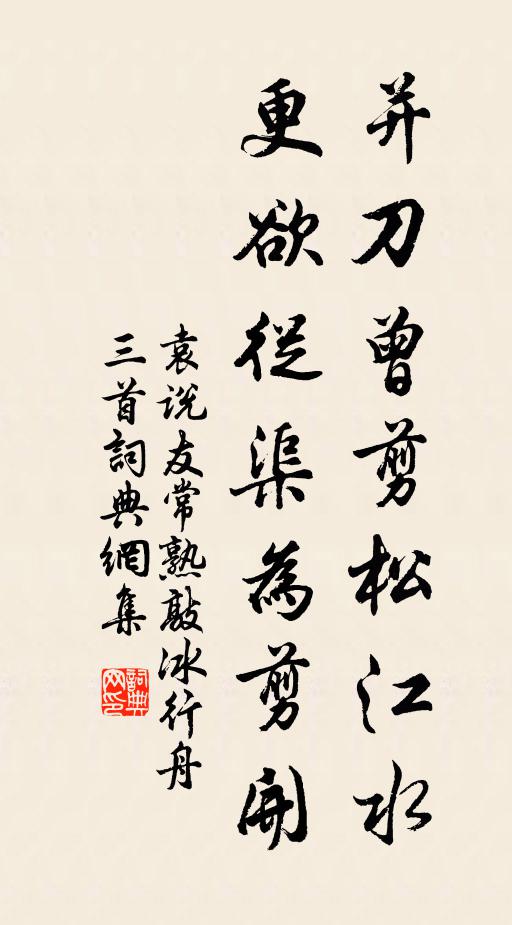 并刀曾剪松江水
更欲從渠為剪開
袁说友常熟敲冰行舟
三首詞典網集
詞典网印